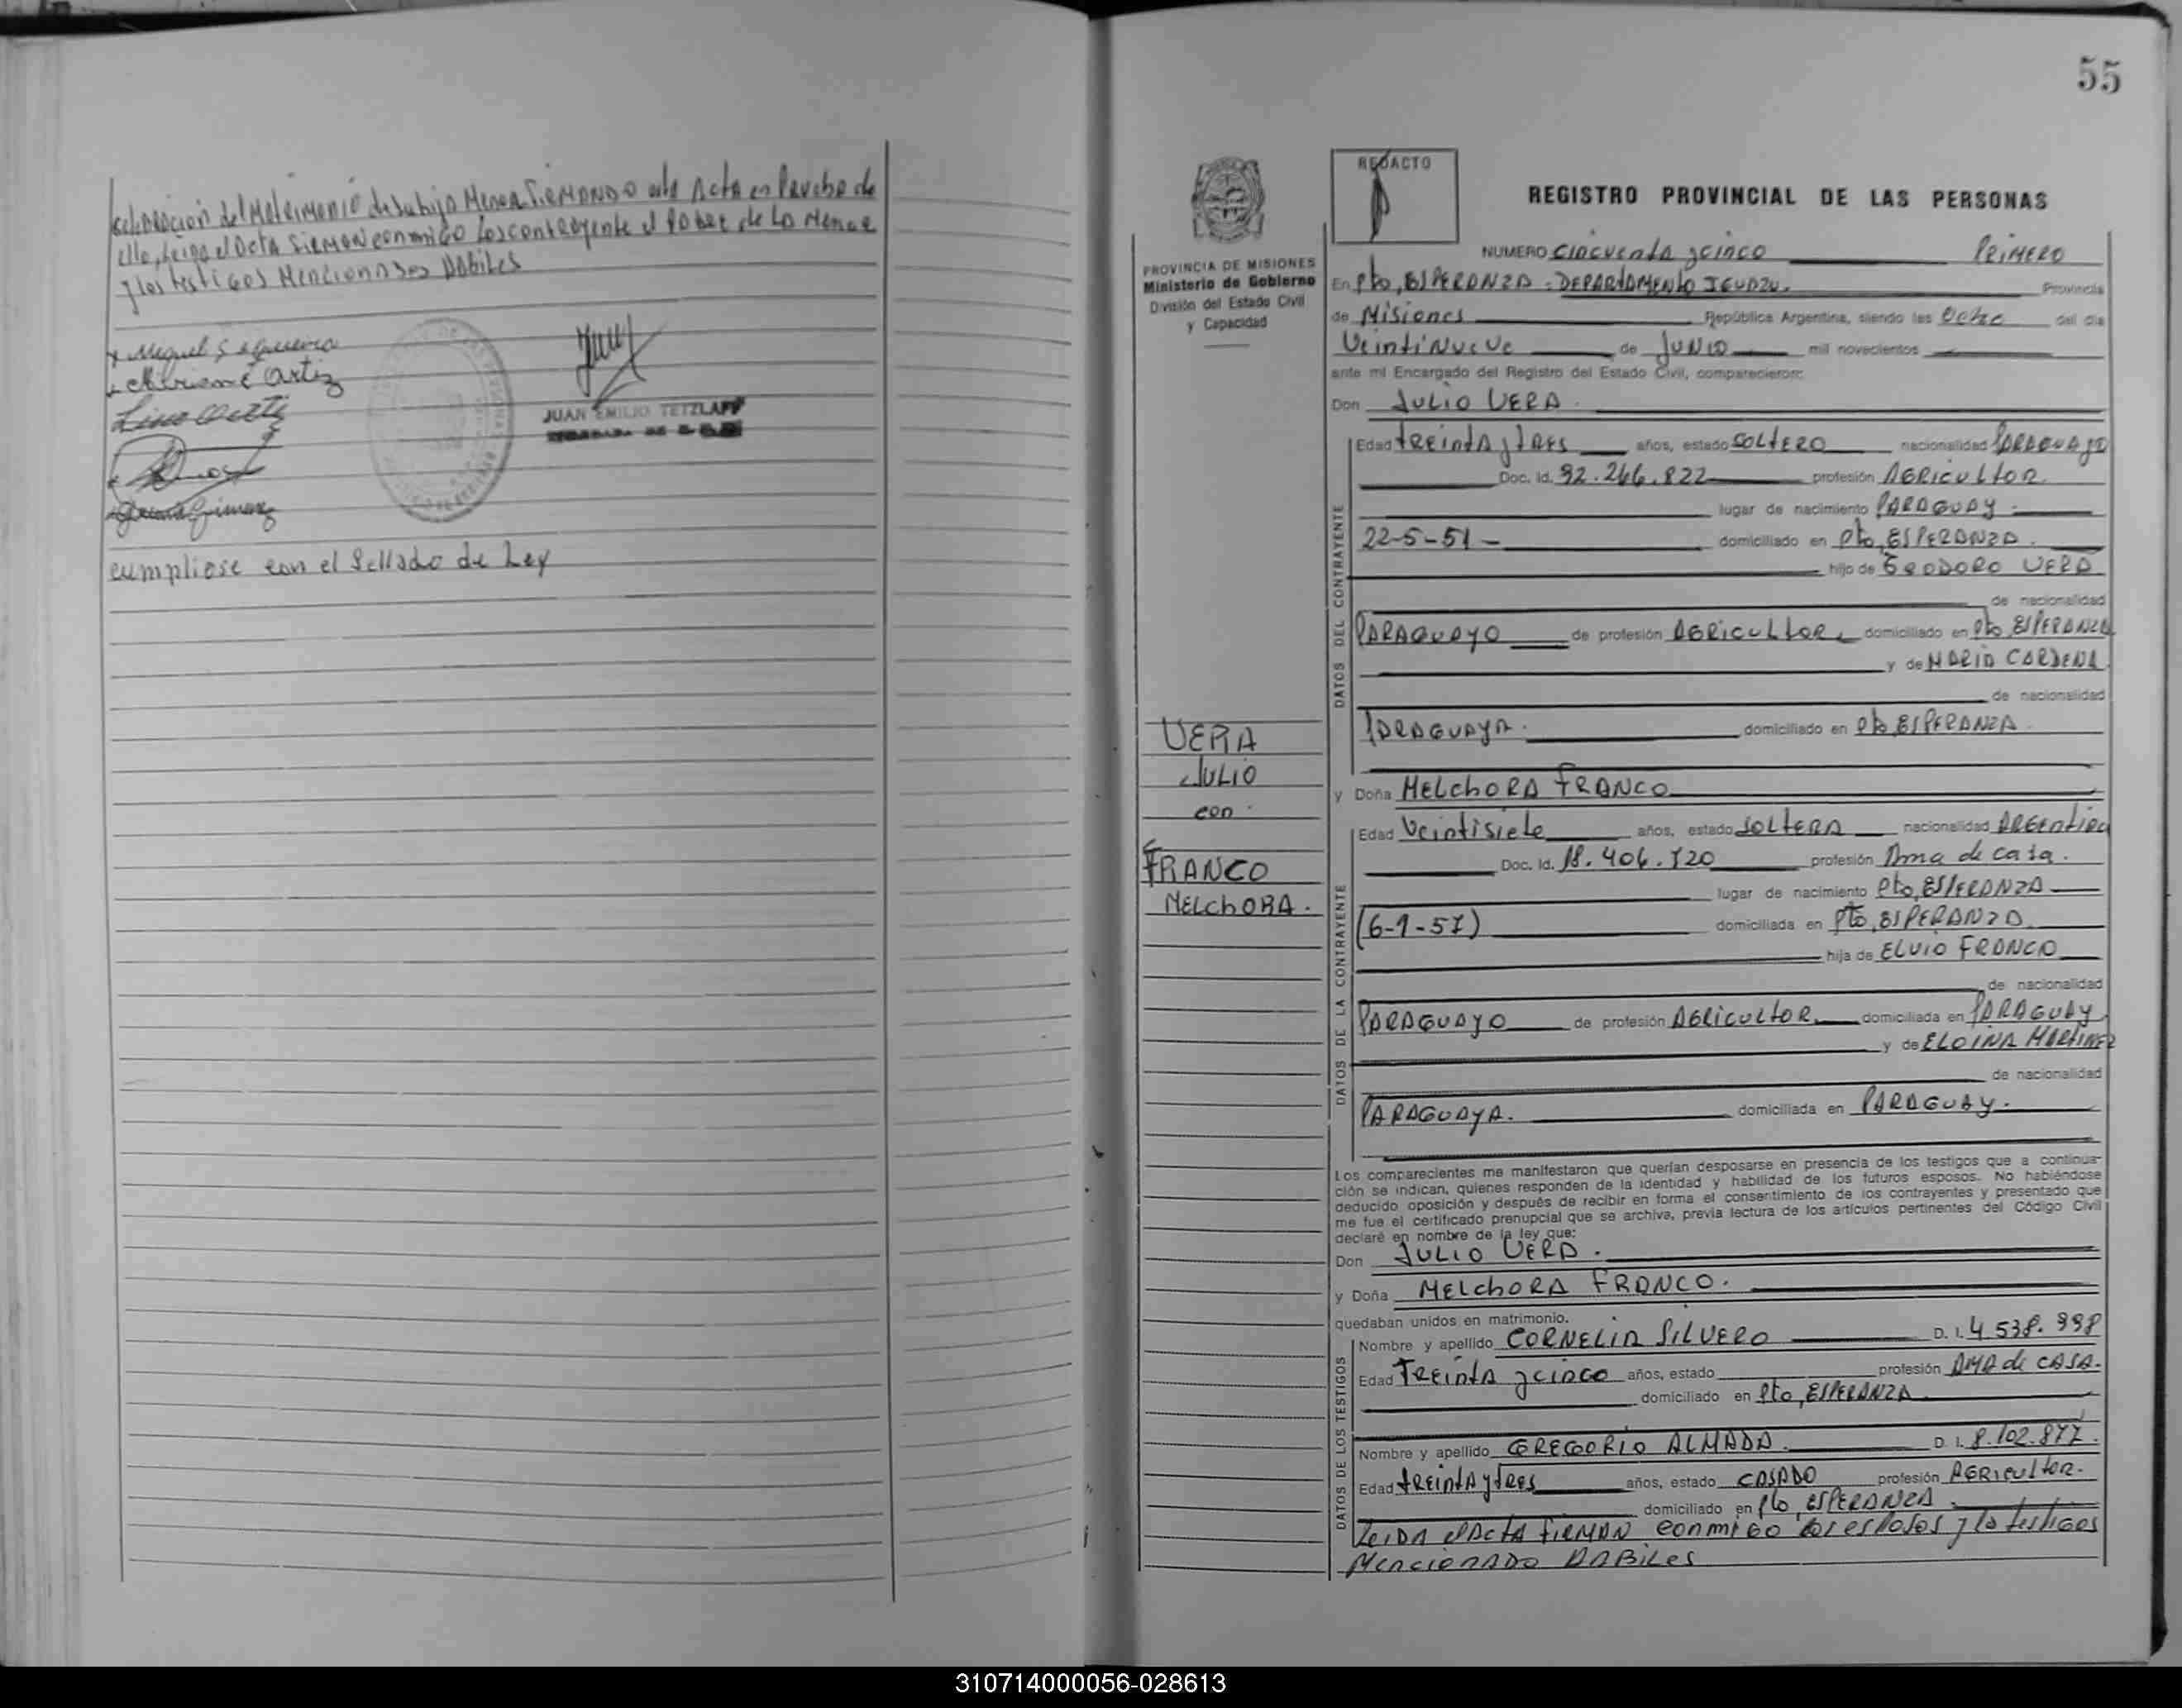 celebración del Matrimonio de su hija Menor FIRMANDO esta Acta en Prueba de
ello, Leida el Acta FIRMAN conmigo Los contrayente el Padre de La Menor
y los testigos Mencionados Habiles
Miguel
Ortiz
Lino Ortiz
JUAN EMILIO TETZLAFF
Gimenez
cumpliose con el Sellado de Ley
55
REDACTO
REGISTRO PROVINCIAL DE LAS PERSONAS
PROVINCIA DE MISIONES
Ministerio de Gobierno
División del Estado Civil
y Capacidad
NUMERO cincuenta y cinco PRIMERO
En Pto, ESPERANZA - DEPARTAMENTO IGUAZU. Provincia
de Misiones República Argentina, siendo las Ocho del día
Veintinueve de JUNIO mil novecientos
ante mí Encargado del Registro del Estado Civil, comparecieron:
Don JULIO VERA.
VERA
JULIO
con
FRANCO
MELCHORA.
DATOS DEL CONTRAYENTE
Edad treinta y tres años, estado SOLTERO nacionalidad PARAGUAYO
Doc. Id. 92.266.822 profesión AGRICULTOR
lugar de nacimiento PARAGUAY
22-5-51- domiciliado en Pto, ESPERANZA.
hijo de TEODORO VERA
de nacionalidad
PARAGUAYO de profesión AGRICULTOR domiciliado en Pto ESPERANZA
y de MARIA CARDENA
de nacionalidad
PARAGUAYA. domiciliado en Pto ESPERANZA
y Doña MELCHORA FRANCO
DATOS DE LA CONTRAYENTE
Edad Veintisiete años, estado SOLTERA nacionalidad ARGENTINA
Doc. Id. 18.406.720 profesión Ama de casa.
lugar de nacimiento Pto, ESPERANZA
(6-1-57) domiciliada en Pto, ESPERANZA
hija de ELVIO FRANCO
de nacionalidad
PARAGUAYO de profesión AGRICULTOR domiciliada en PARAGUAY
y de ELOINA MARTINEZ
de nacionalidad
PARAGUAYA. domiciliada en PARAGUAY.
Los comparecientes me manifestaron que querían desposarse en presencia de los testigos que a continua-
ción se indican, quienes responden de la identidad y habilidad de los futuros esposos. No habiéndose
deducido oposición y después de recibir en forma el consentimiento de los contrayentes y presentado que
me fue el certificado prenupcial que se archiva, previa lectura de los artículos pertinentes del Código Civil
declaré en nombre de la ley que:
Don JULIO VERA.
y Doña MELCHORA FRANCO.
quedaban unidos en matrimonio.
DATOS DE LOS TESTIGOS
Nombre y apellido CORNELIA SILVERO D. I. 4 538. 998
Edad TREINTA y cinco años, estado profesión AMA de CASA.
domiciliado en Pto, ESPERANZA
Nombre y apellido GREGORIO ALMADA D. I. 8.102.877.
Edad treinta y tres años, estado CASADO profesión AGRICULTOR.
domiciliado en Pto, ESPERANZA.
Leida el Acta FIRMAN conmigo los esposos y lo testigos
Mencionado HABILES
310714000056-028613